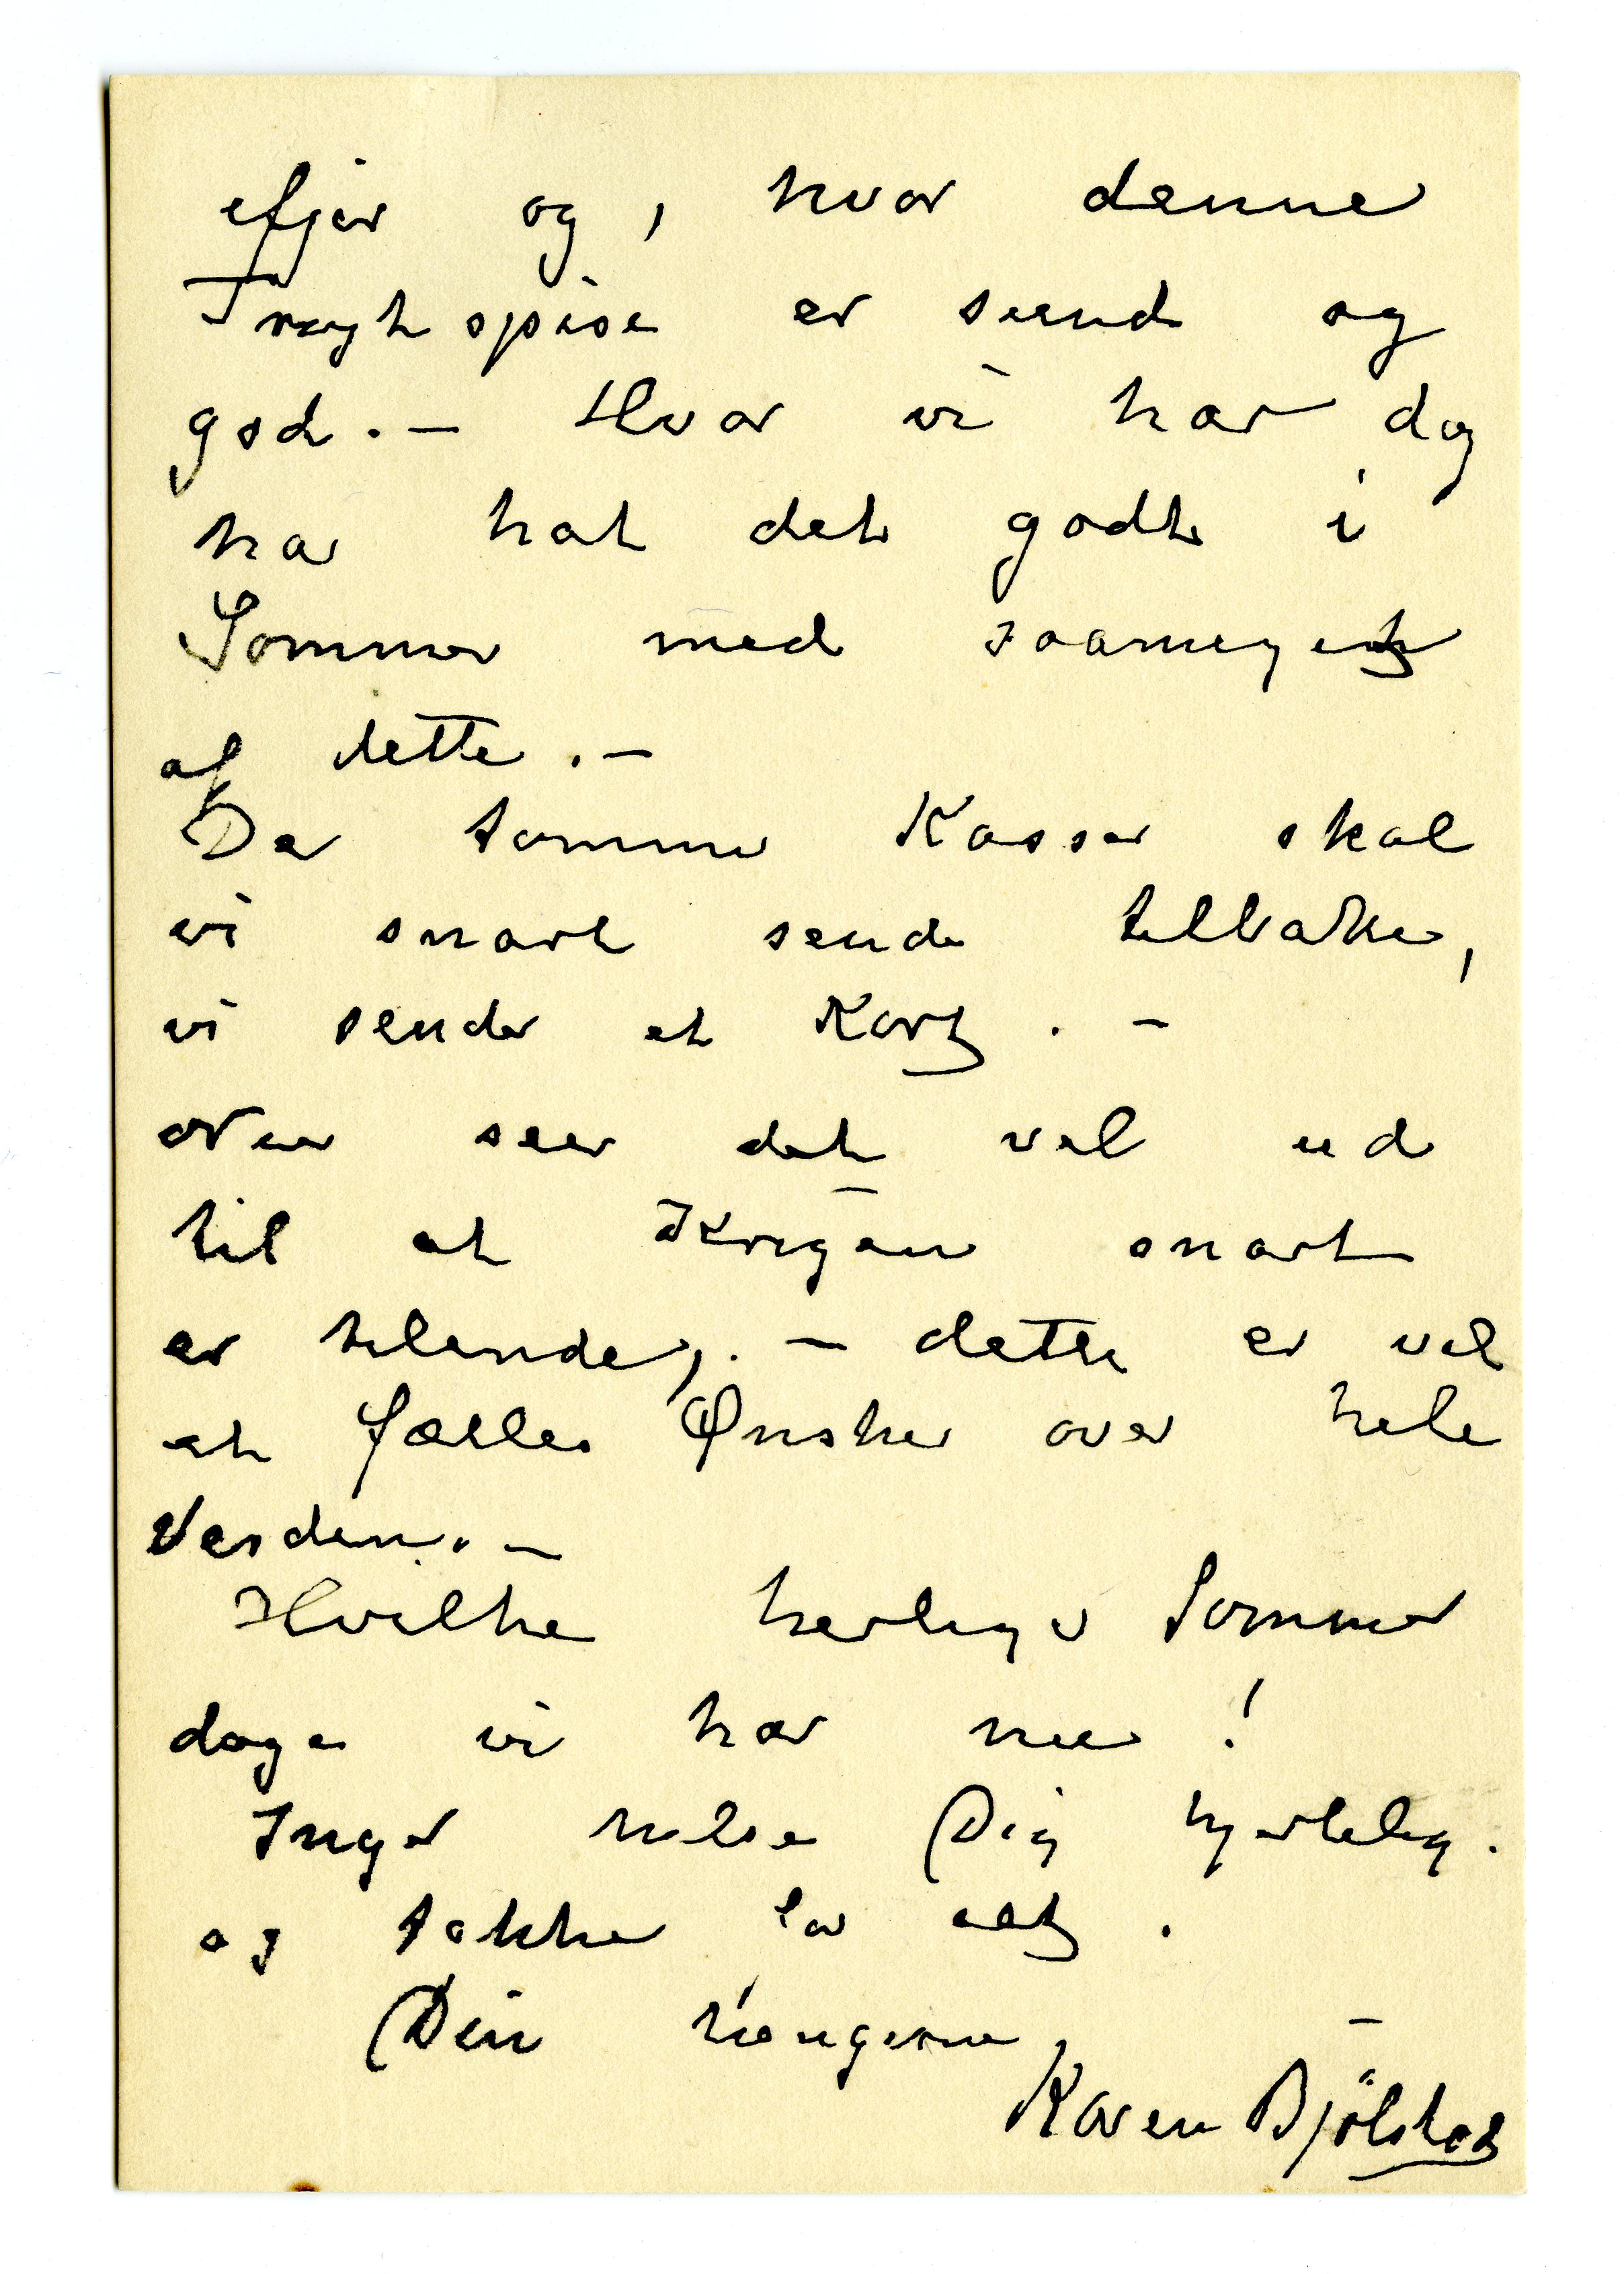 efjer og, hvor denne
Frugtspise er sund og
god. – Hvor vi har dog
har hat det godt i
Sommer med saameget
af dette. –
De tomme Kasser skal
vi snart sende tilbake,
vi sender et Kort. –
Nu seer det vel ud
til at Krigen snart
er tilende, . – dette er vel
et fælles Ønske over hele
Verden. –
Hvilke herlige Sommer
dage vi har nu !
Inger hilse Dig hjertelig.
og takke for alt .
Din hengivne
Karen Bjölstad